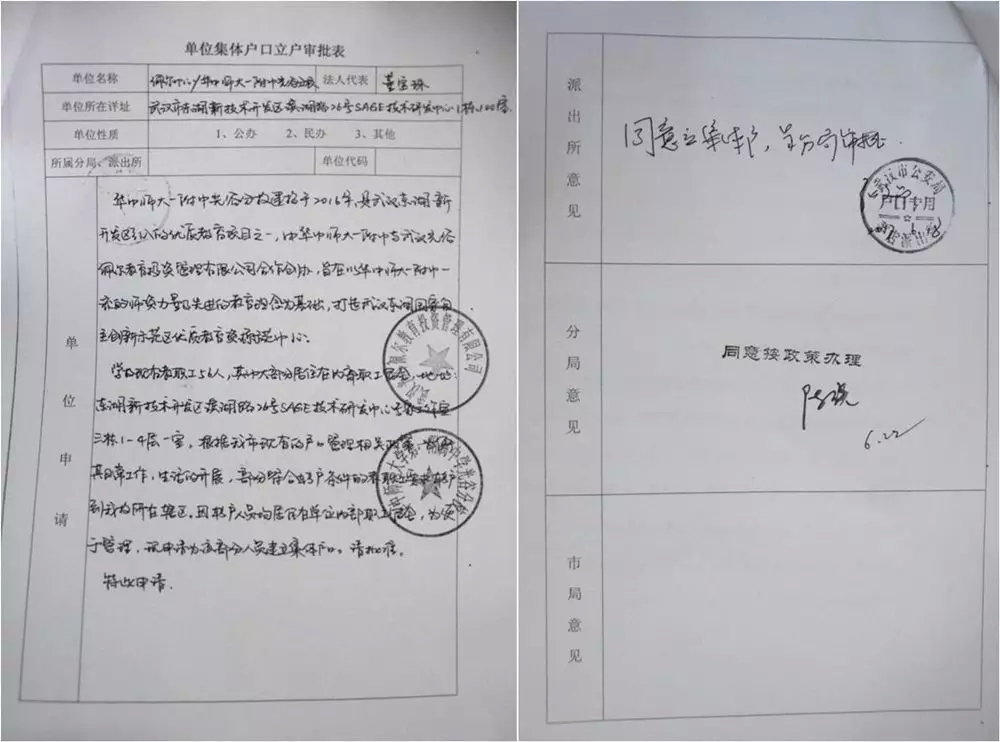 单位集体户口立户审批表
单位名称
佩尔中心/华中师大一附中光谷分校
法人代表
董宝珠
单位所在详址
武汉市东湖新技术开发区滨湖路26号SAGE技术研发中心1栋100房
单位性质
1、公办 2、民办 3、其他
所属分局、派出所
单位代码
单位申请
华中师大一附中光谷分校建格于2016年,是武汉东湖新
开发区引入的优质教育项目之一,由华中师大一附中与武汉光谷
佩尔教育投资管理有限公司合作创办,旨在以华中师大一附中一
流的师资力量及先进的教育理念为基础,打造武汉东湖国家自
主创新示范区优质教育资源中心。
学校现有教职工56人,其中大部分居住在内部职工宿舍,地址:
东湖新技术开发区滨湖路26号SAGE技术研发中心
三栋1-4层一室,根据我市现有的户口管理相关政策
其日常工作,生活的开展,部分符合落户条件的教职工要求落户
到我校所在辖区,因落户人员均居住在单位内部职工宿舍,为便
于管理,现申请为该部分人员建立集体户口。请批准。
特此申请.
武汉光谷佩尔教育投资管理有限公司
华中师范大学第一附属中学光谷分校
派出所意见
同意立集体户,呈分局审批.
武汉市公安局
户口专用
分局意见
同意按政策办理
6.22
市局意见